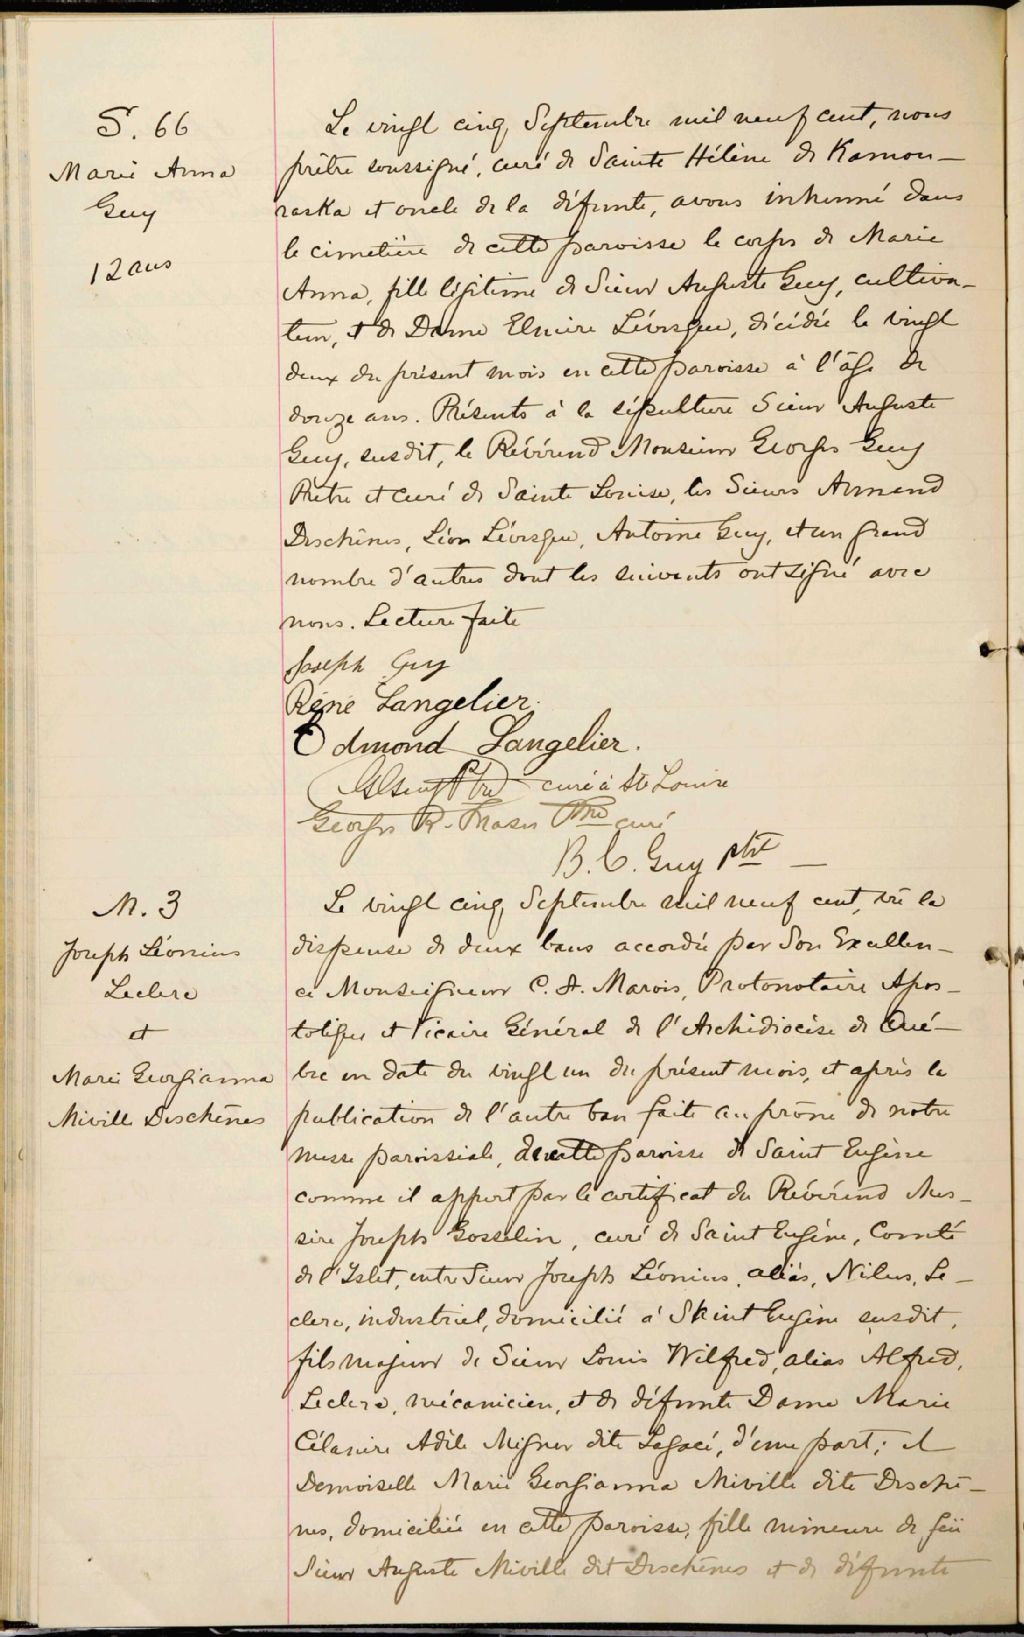 S. 66
Marie Anna
Guy
12 ans
Le vingt cinq Septembre mil neuf cent, nous
prêtre soussigné, curé de Sainte Hélène de Kamou-
raska et oncle de la défunte, avons inhumé dans
le cimetière de cette paroisse le corps de Marie
Anna, fille légitime de Sieur Auguste Guy, cultiva-
teur, et de Dame Elmire Lévesque, décédée le vingt
deux du présent mois en cette paroisse à l'âge de
douze ans. Présents à la sépulture Sieur Auguste
Guy, susdit, le Révérend Monsieur Georges Guy
Prêtre et curé de Sainte Louise, les Sieurs Armand
Deschênes, Léon Lévesque, Antoine Guy, et un grand
nombre d'autres dont les suivants ont signé avec
nous. Lecture faite
Joseph Guy
Réné Langelier.
Edmond Langelier.
G Guy Ptre curé à Ste Louise
Georges R. Fraser Ptre curé
B. C. Guy ptre —
M. 3
Joseph Léonius
Leclerc
et
Marie Georgianna
Miville Deschênes
Le vingt cinq Septembre mil neuf cent, vu la
dispense de deux bans accordée par Son Excellen-
ce Monseigneur C. A. Marois, Protonotaire Apos-
tolique et Vicaire Général de l'Archidiocèse de Qué-
bec en date du vingt un du présent mois, et après la
publication de l'autre ban faite au prône de notre
messe paroissiale, de cette paroisse de Saint Eugène
comme il appert par le certificat du Révérend Mes-
sire Joseph Gosselin, curé de Saint Eugène, Comté
de l'Islet, entre Sieur Joseph Léonius, aliàs, Nilus, Le-
clerc, industriel, domicilié à Saint Eugène susdit,
fils majeur de Sieur Louis Wilfred, alias Alfred,
Leclerc, mécanicien, et de défunte Dame Marie
Célanire Adèle Mignier dite Lagacé, d'une part; et
Demoiselle Marie Georgianna Miville dite Deschê-
nes, domiciliée en cette paroisse, fille mineure de feü
Sieur Auguste Miville dit Deschênes et de défunte